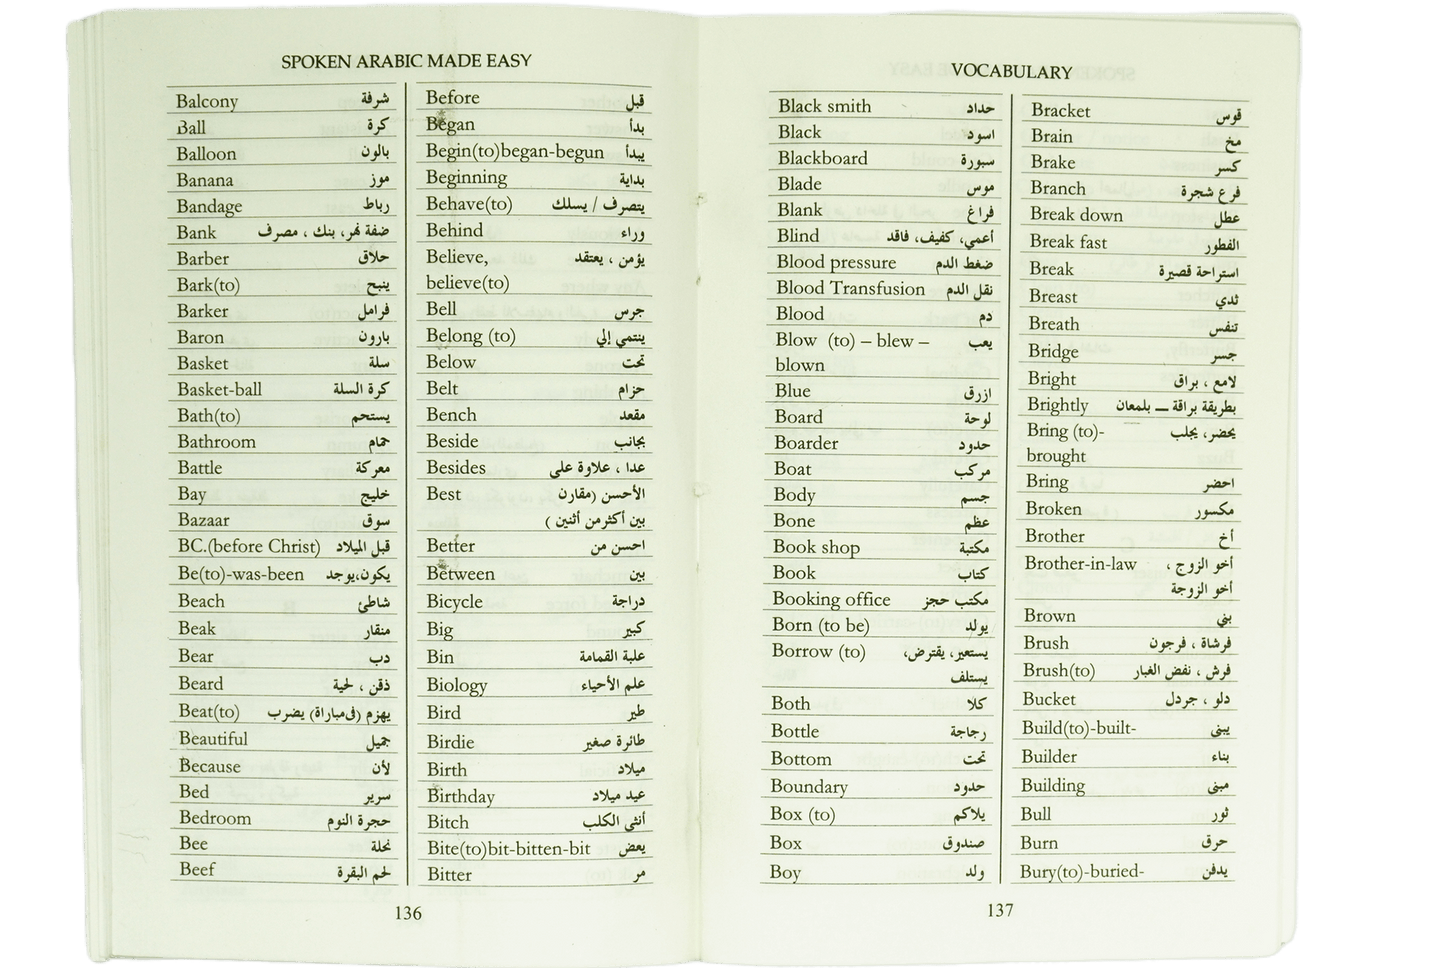 SPOKEN ARABIC MADE EASY
Balcony شرفة
Ball كرة
Balloon بالون
Banana موز
Bandage رباط
Bank ضفة نهر، بنك ، مصرف
Barber حلاق
Bark(to) ينبح
Barker فرامل
Baron بارون
Basket سلة
Basket-ball كرة السلة
Bath(to) يستحم
Bathroom حمام
Battle معركة
Bay خليج
Bazaar سوق
BC.(before Christ) قبل الميلاد
Be(to)-was-been يكون،يوجد
Beach شاطئ
Beak منقار
Bear دب
Beard ذقن ، لحية
Beat(to) يهزم (فى مباراة) يضرب
Beautiful جميل
Because لأن
Bed سرير
Bedroom حجرة النوم
Bee نحلة
Beef لحم البقرة
Before قبل
Began بدأ
Begin(to)began-begun يبدأ
Beginning بداية
Behave(to) يتصرف / يسلك
Behind وراء
Believe, يؤمن ، يعتقد
believe(to)
Bell جرس
Belong (to) ينتمي إلي
Below تحت
Belt حزام
Bench مقعد
Beside بجانب
Besides عدا ، علاوة على
Best الأحسن (مقارن
بين أكثر من أثنين )
Better احسن من
Between بين
Bicycle دراجة
Big كبير
Bin علبة القمامة
Biology علم الأحياء
Bird طير
Birdie طائرة صغير
Birth ميلاد
Birthday عيد ميلاد
Bitch أنثى الكلب
Bite(to)bit-bitten-bit يعض
Bitter مر
136
VOCABULARY
Black smith حداد
Black اسود
Blackboard سبورة
Blade موس
Blank فراغ
Blind أعمي، كفيف، فاقد
Blood pressure ضغط الدم
Blood Transfusion نقل الدم
Blood دم
Blow (to) – blew – يعب
blown
Blue ازرق
Board لوحة
Boarder حدود
Boat مركب
Body جسم
Bone عظم
Book shop مكتبة
Book كتاب
Booking office مكتب حجز
Born (to be) يولد
Borrow (to) يستعير، يقترض،
يستلف
Both كلا
Bottle رجاجة
Bottom تحت
Boundary حدود
Box (to) يلاكم
Box صندوق
Boy ولد
Bracket قوس
Brain مخ
Brake كسر
Branch فرع شجرة
Break down عطل
Break fast الفطور
Break استراحة قصيرة
Breast ثدي
Breath تنفس
Bridge جسر
Bright لامع ، براق
Brightly بطريقة براقة ـــ بلمعان
Bring (to)- يحضر، يجلب
brought
Bring احضر
Broken مكسور
Brother أخ
Brother-in-law أخو الزوج ،
أخو الزوجة
Brown بني
Brush فرشاة ، فرجون
Brush(to) فرش ، نفض الغبار
Bucket دلو ، جردل
Build(to)-built- يبنى
Builder بناء
Building مبنى
Bull ثور
Burn حرق
Bury(to)-buried- يدفن
137